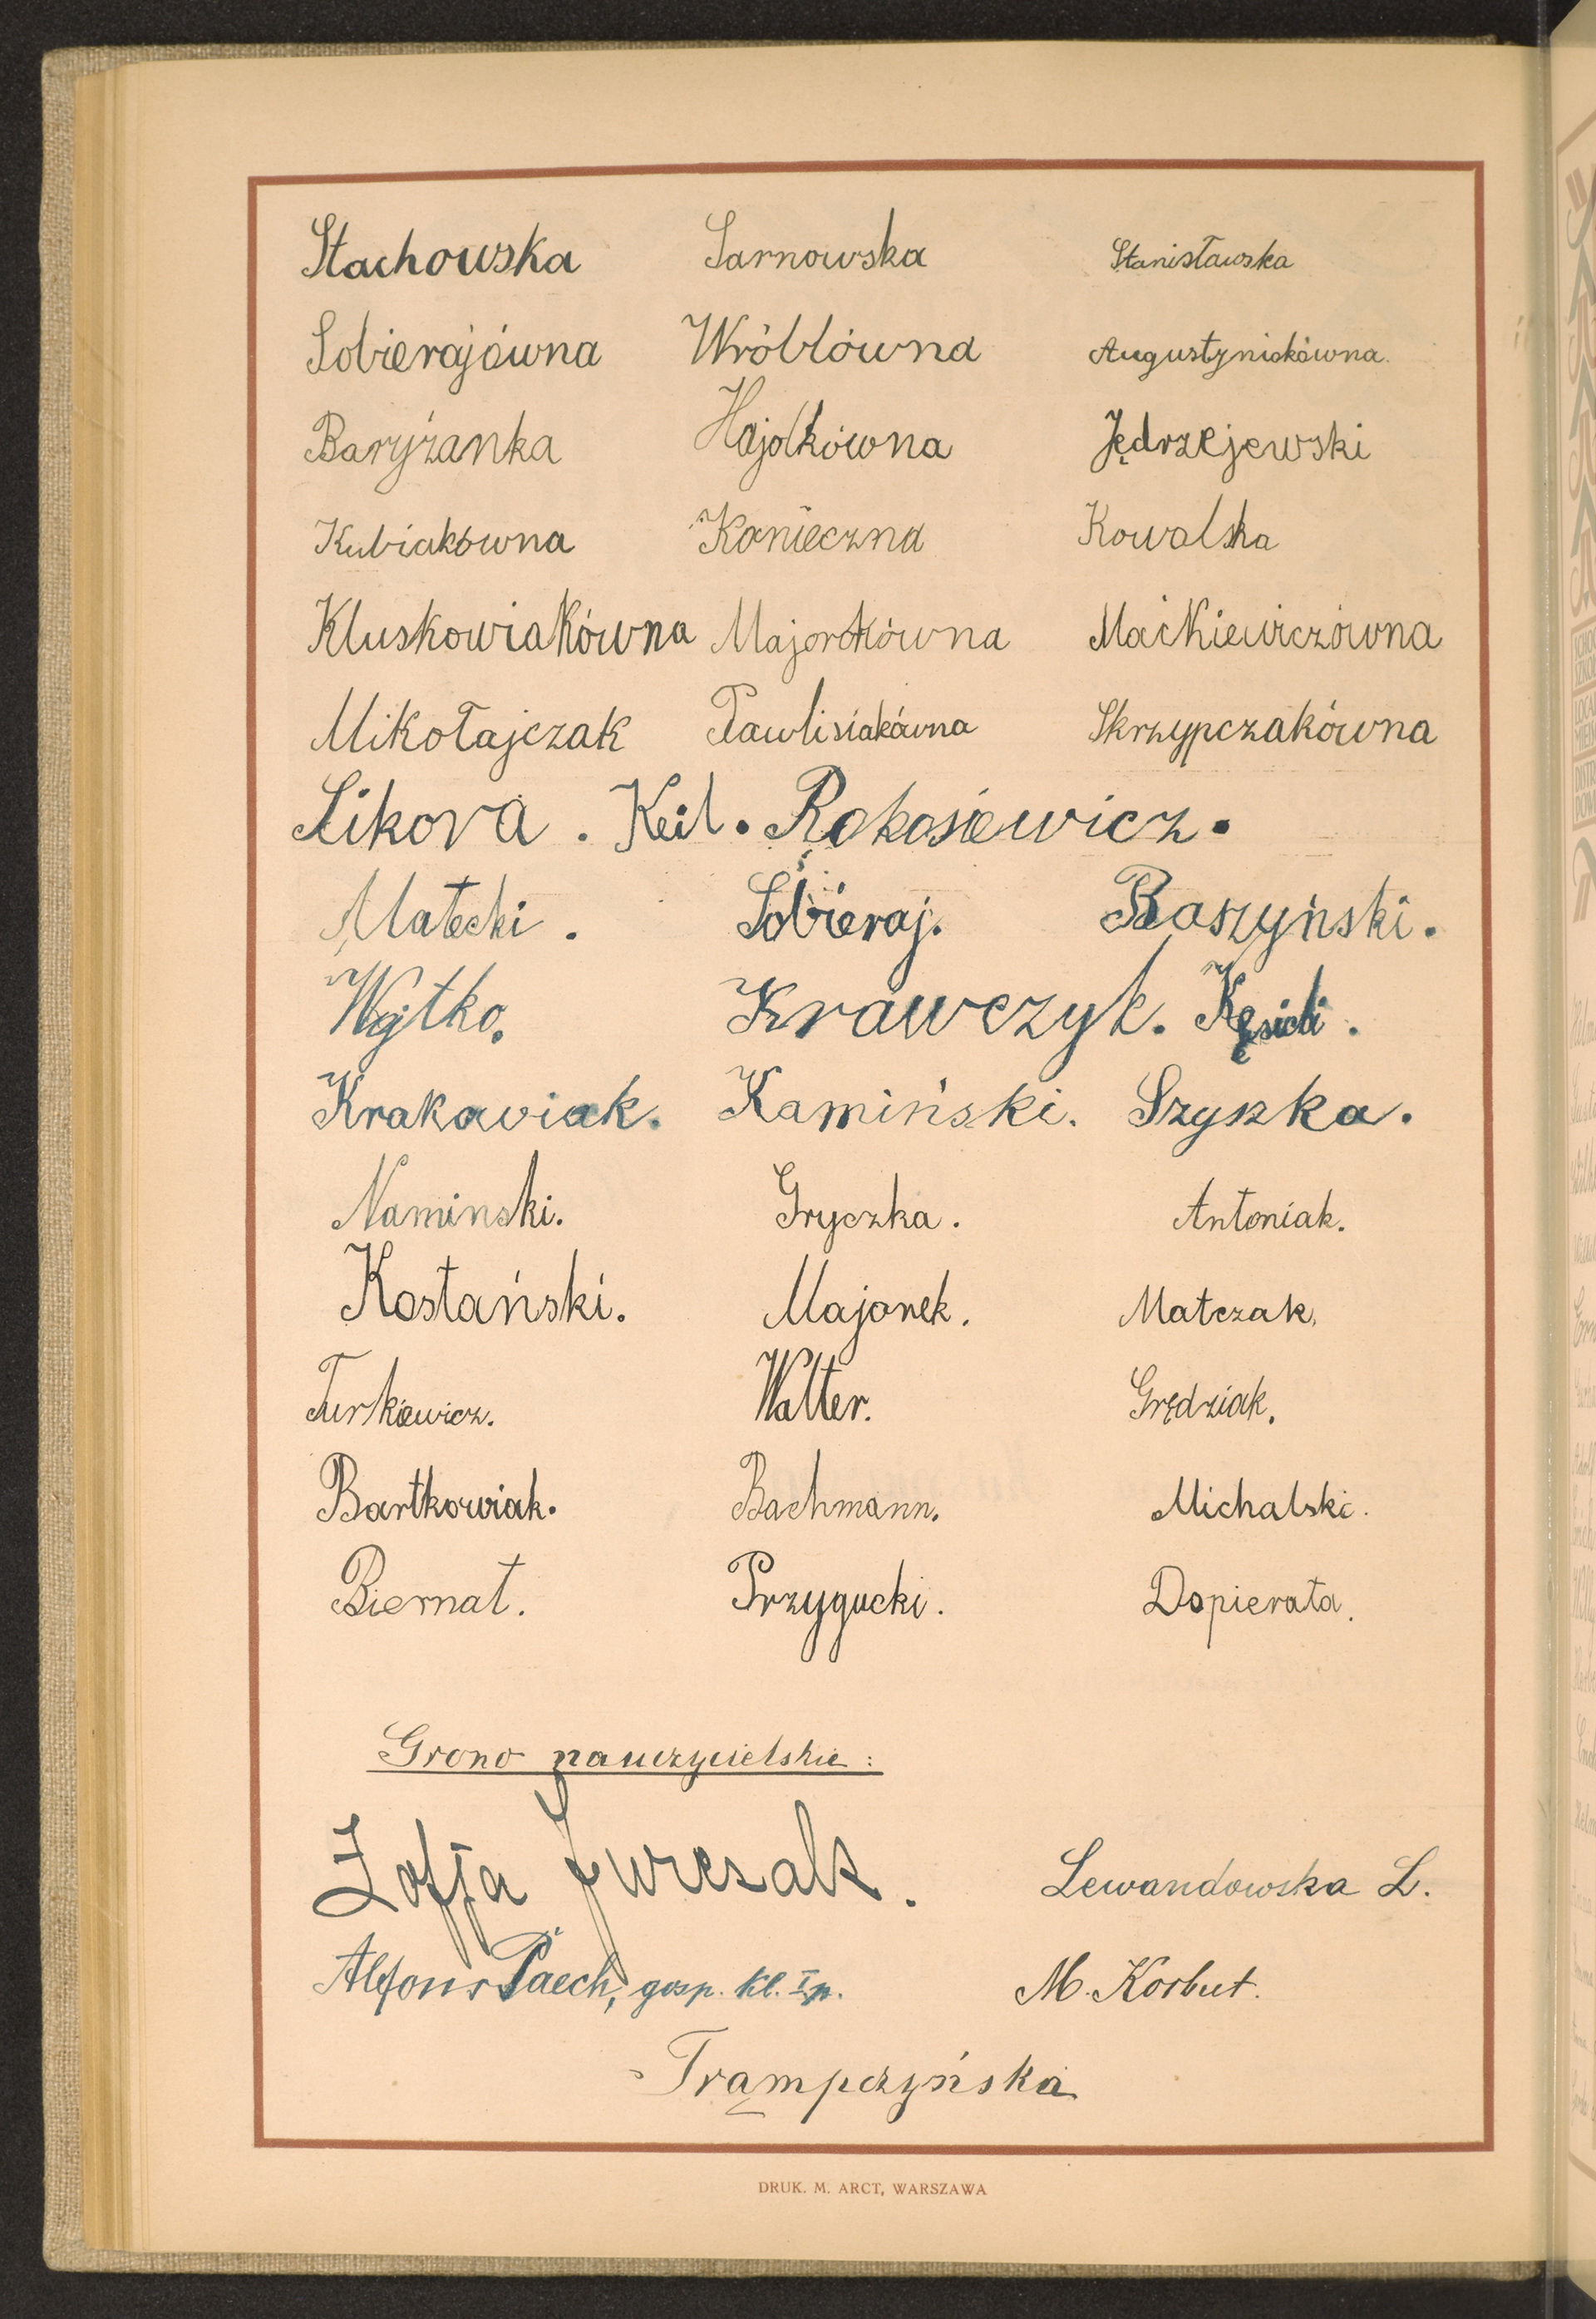 Stachowska Sarnowska Stanisławska
Sobierajówna Wróblówna Augustyniakówna.
Baryżanka Hajdkówna Jędrzejewski
Kubiakówna Konieczna Kowalska
Kluskowiakówna Majorkówna Maćkiewiczówna
Mikołajczak Pawlisiakówna Skrzypczakówna
Sikora. Keil. Rokosiewicz.
Małecki. Sobieraj. Raszyński.
Wojtko. Krawczyk. Kęsicki.
Krakowiak. Kamiński. Szyszka.
Naminski. Gryczka. Antoniak.
Kostański. Majonek. Matczak.
Turkiewicz. Walter. Grędziak.
Bartkowiak. Bachmann. Michalski.
Biernat. Przygucki. Dopierała.
Grono nauczycielskie:
Zofja Jurczak. Lewandowska L.
Alfons Paech, gosp. kl. Ip. M. Korbut.
Trąmpczyńska
DRUK. M. ARCT, WARSZAWA